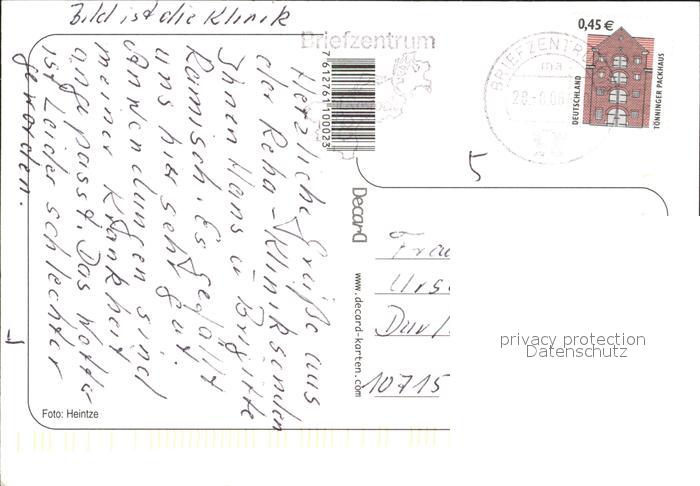 Bild ist die Klinik
Herzliche Grüße aus
der Reha-Klinik senden
Ihnen Hans u Brigitte
Romisch. Es gefällt
uns hier sehr gut.
Anwendungen sind
meiner Krankheit
angepasst. Das Wetter
ist leider schlechter
geworden.
Foto: Heintze
Briefzentrum
7612761100023
Decard
www.decard-karten.com
BRIEFZENTRU
ma
0,45 €
DEUTSCHLAND
TÖNNINGER PACKHAUS
5
Frau
Urs
10715
privacy protection
Datenschutz